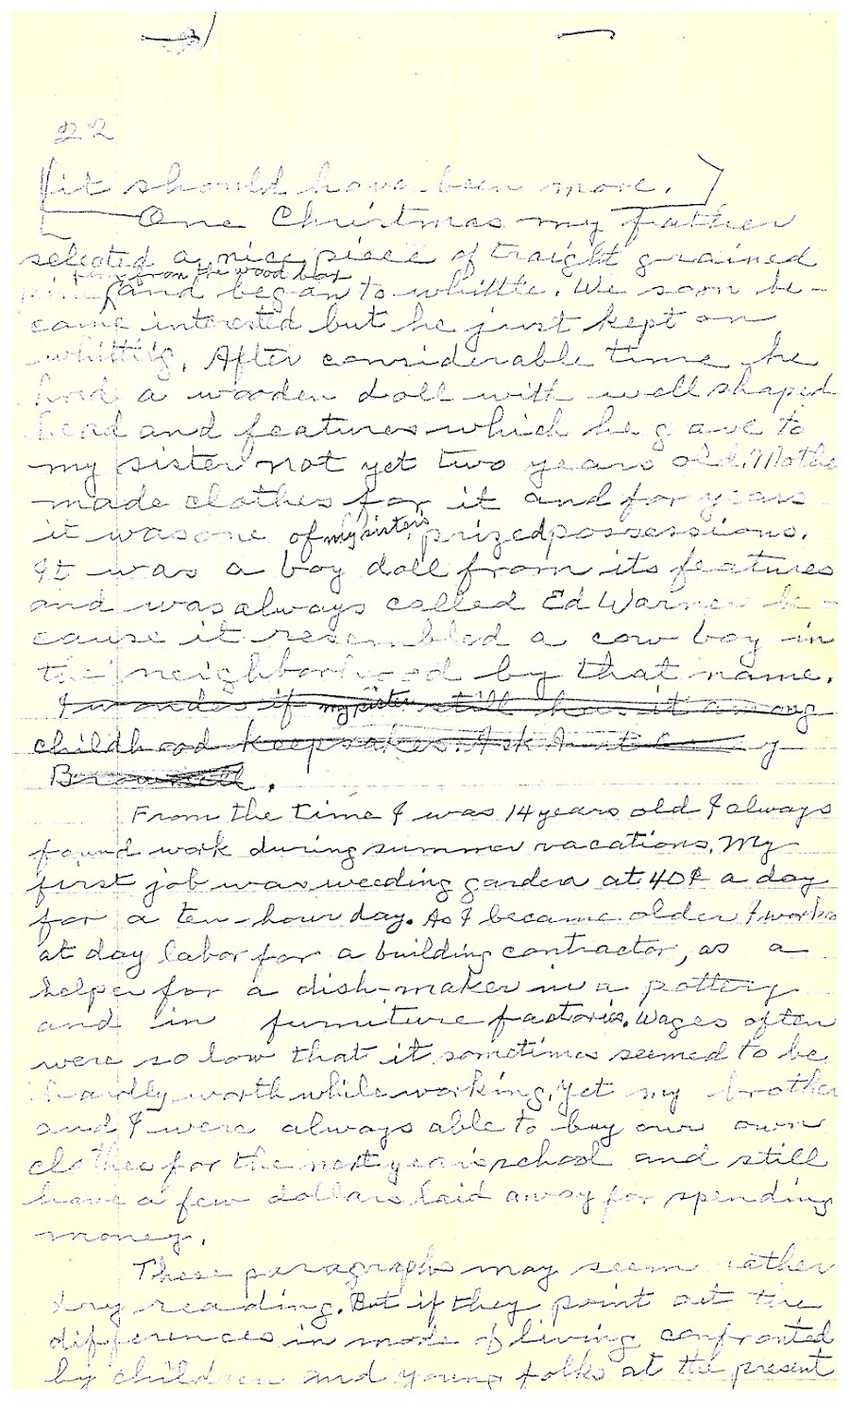 22
[it should have been more.]
One Christmas my father
selected a nice piece of traight grained
from the wood box
pine and began to whittle. We soon be-
came interested but he just kept on
whittig. After considerable time he
had a wooden doll with well shaped
head and features which he gave to
my sister not yet two years old. Mothe
made clothes for it and for years
it was one of my sister's prized possessions.
It was a boy doll from its features
and was always called Ed Warner be-
cause it resembled a cow boy in
the neighborhood by that name.
I wonder if my sister still has it among
childhood keepsakes. Ask Aunt
B
From the time I was 14 years old I always
found work during summer vacations. My
first job was weeding garden at 40¢ a day
for a ten-hour day. As I became older I worke
at day labor for a building contractor, as a
helper for a dish-maker in a pottery
and in furniture factories. Wages often
were so low that it sometimes seemed to be
hardly worth while working. Yet my brother
and I were always able to buy our own
clothes for the next year's school and still
have a few dollars laid away for spending
money.
These paragraphs may seem rather
dry reading. But if they point out the
differences in mode of living confronted
by children and young folks at the present